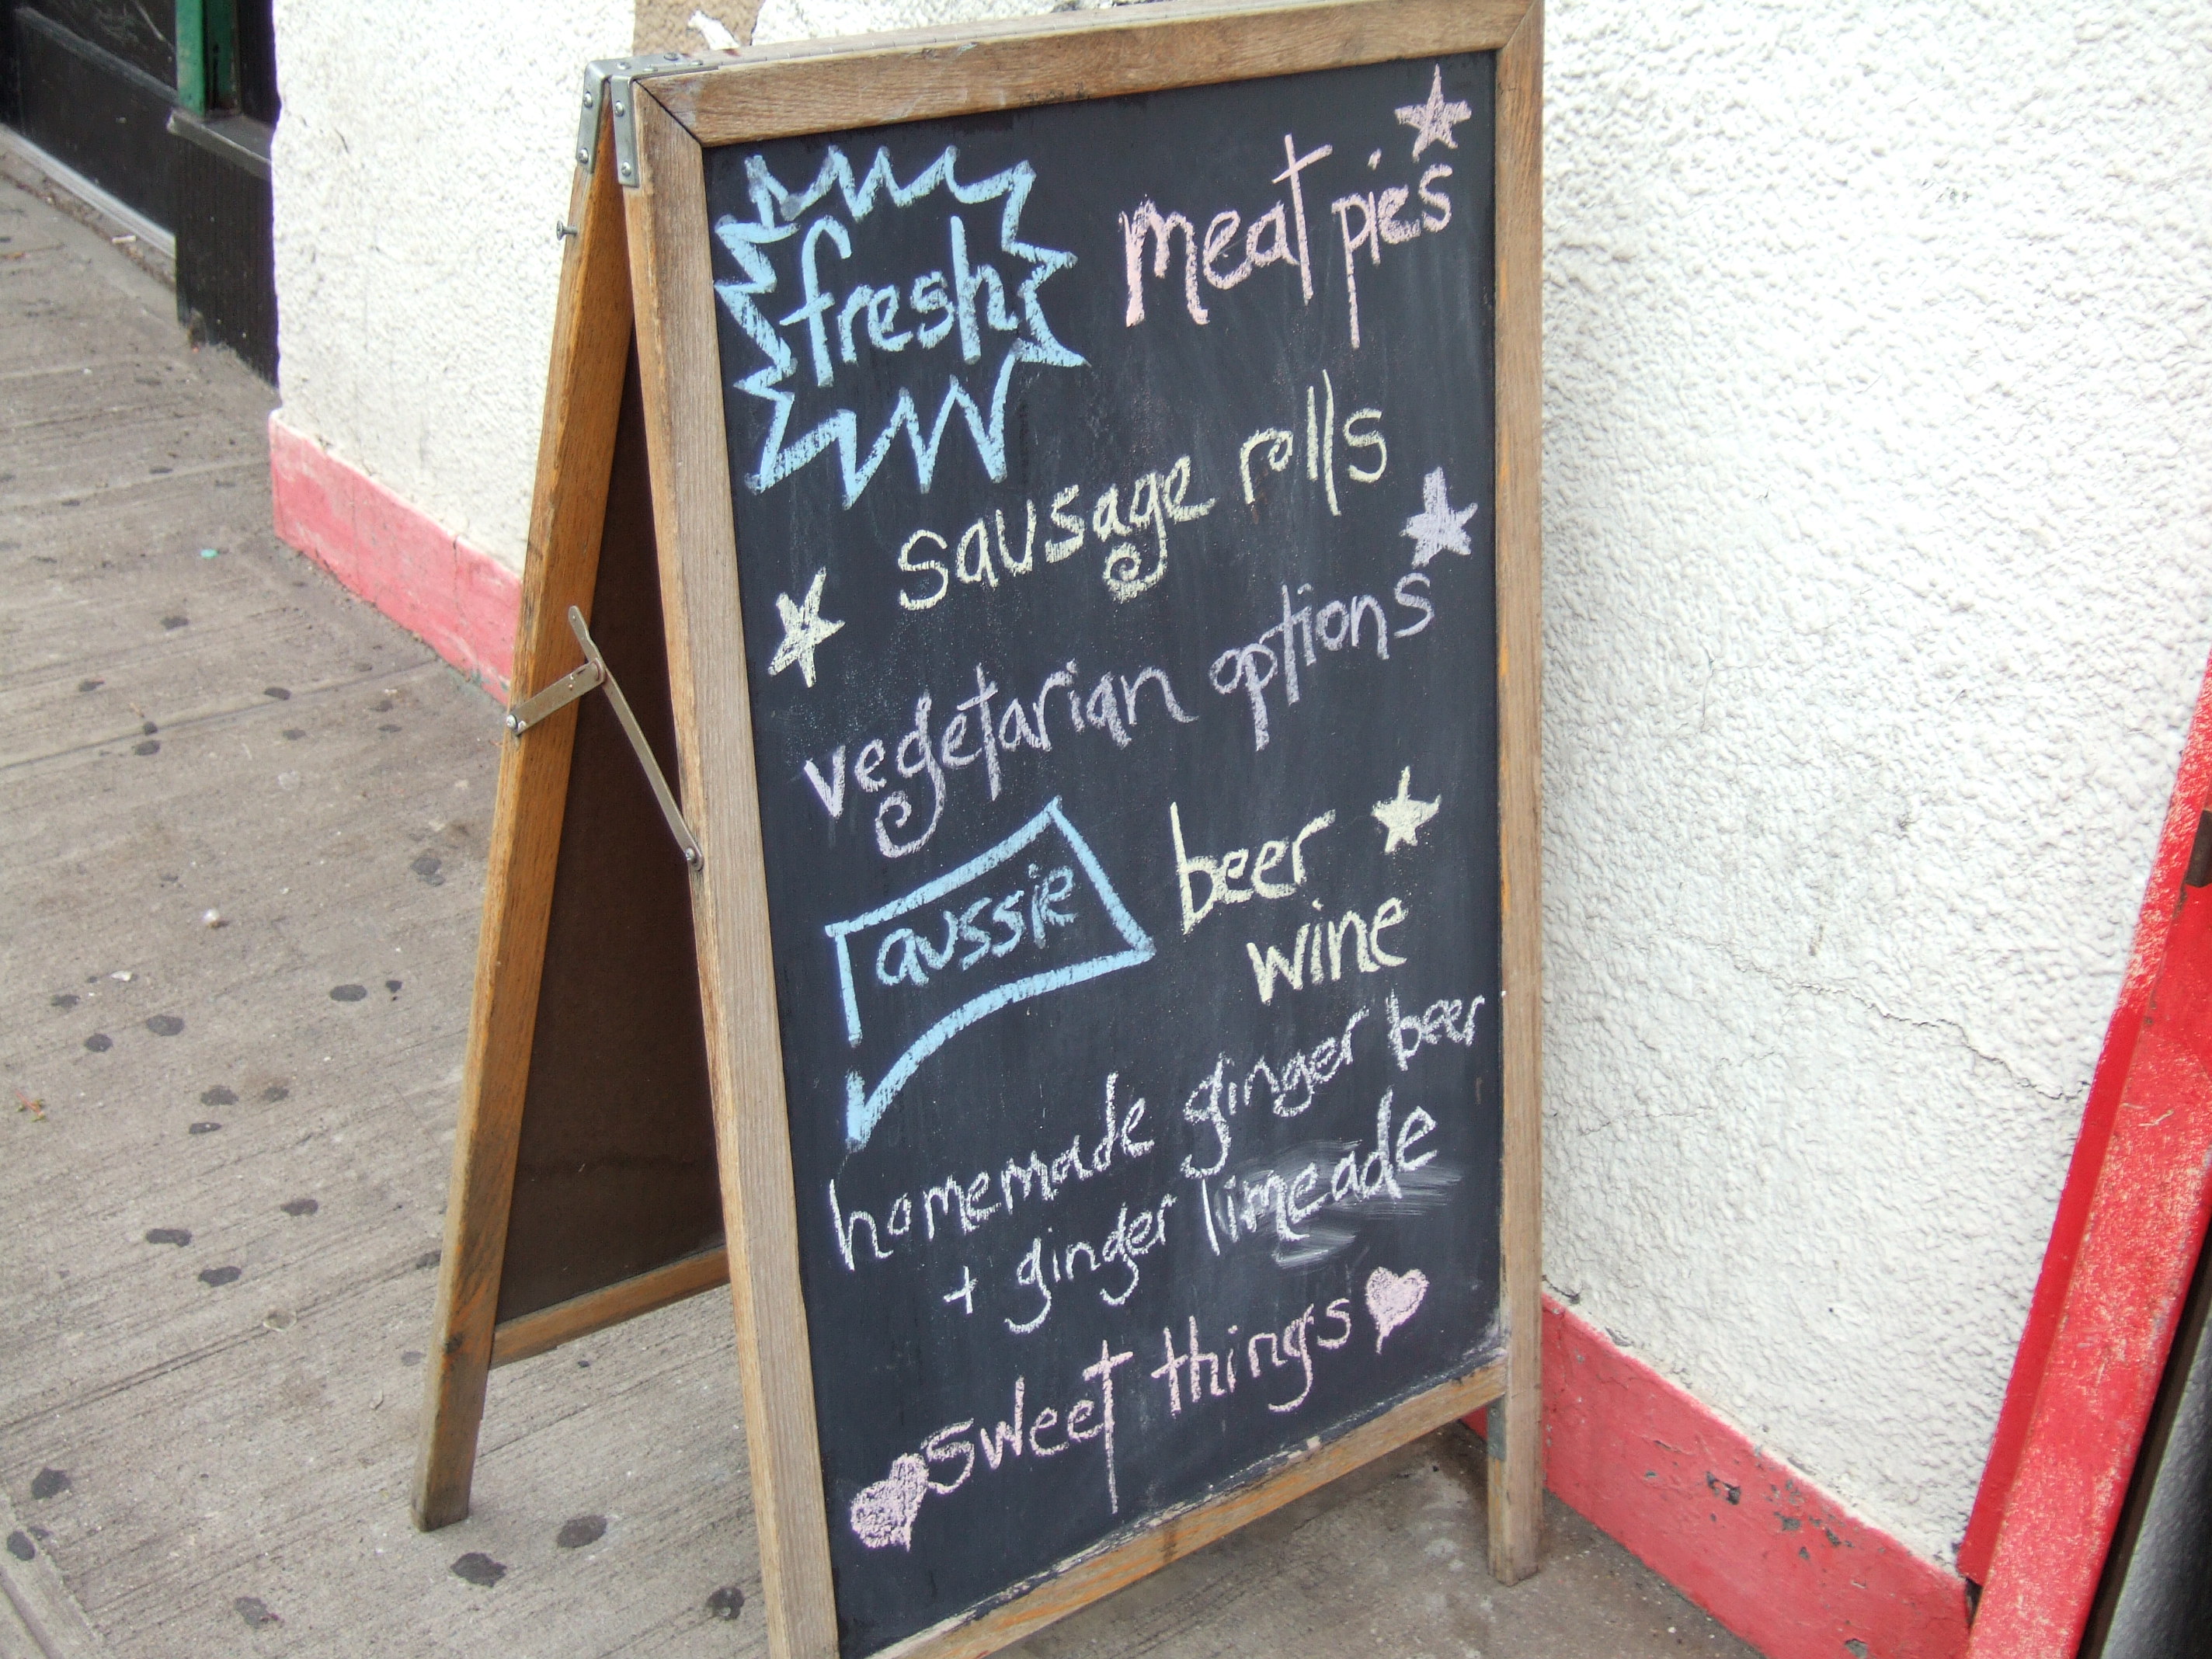 fresh meat pies
sausage rolls
vegetarian options
aussie beer
wine
homemade ginger beer
+ ginger limeade
sweet things